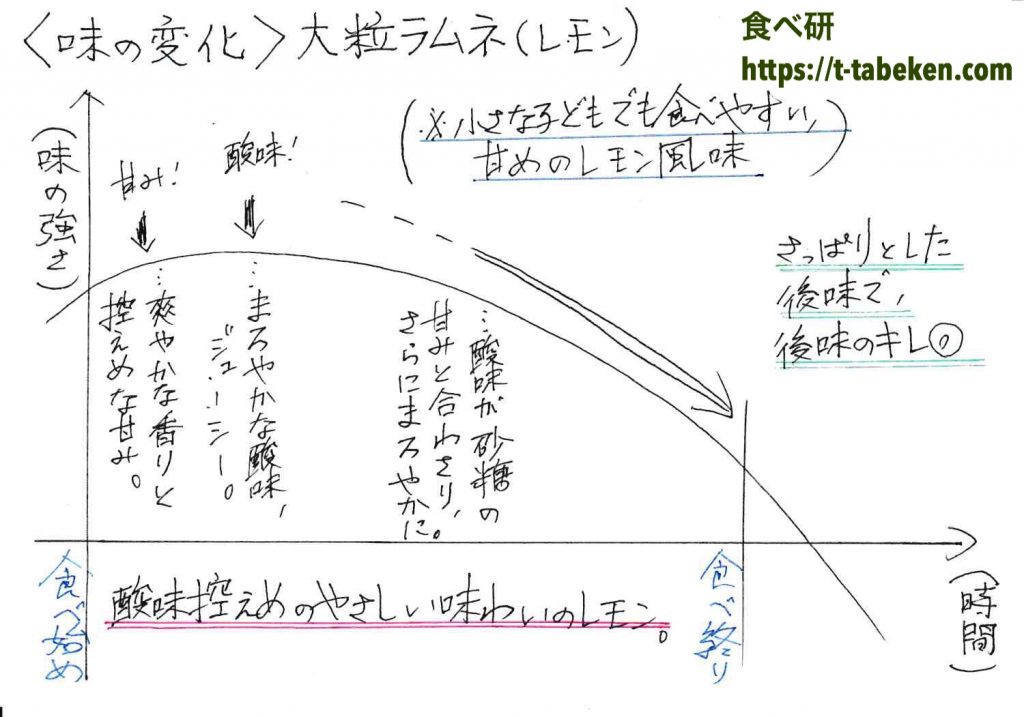 〈味の変化〉大粒ラムネ(レモン)
食べ研
https://t-tabeken.com
(※小さな子どもでも食べやすい、
甘めのレモン風味)
(味の強さ)
甘み!
酸味!
…爽やかな香りと
控えめな甘み。
…まろやかな酸味、
ジューシー。
…酸味が砂糖の
甘みと合わさり、
さらにまろやかに。
さっぱりとした
後味で、
後味のキレ◎
食べ始め
酸味控えめのやさしい味わいのレモン。
食べ終り
(時間)